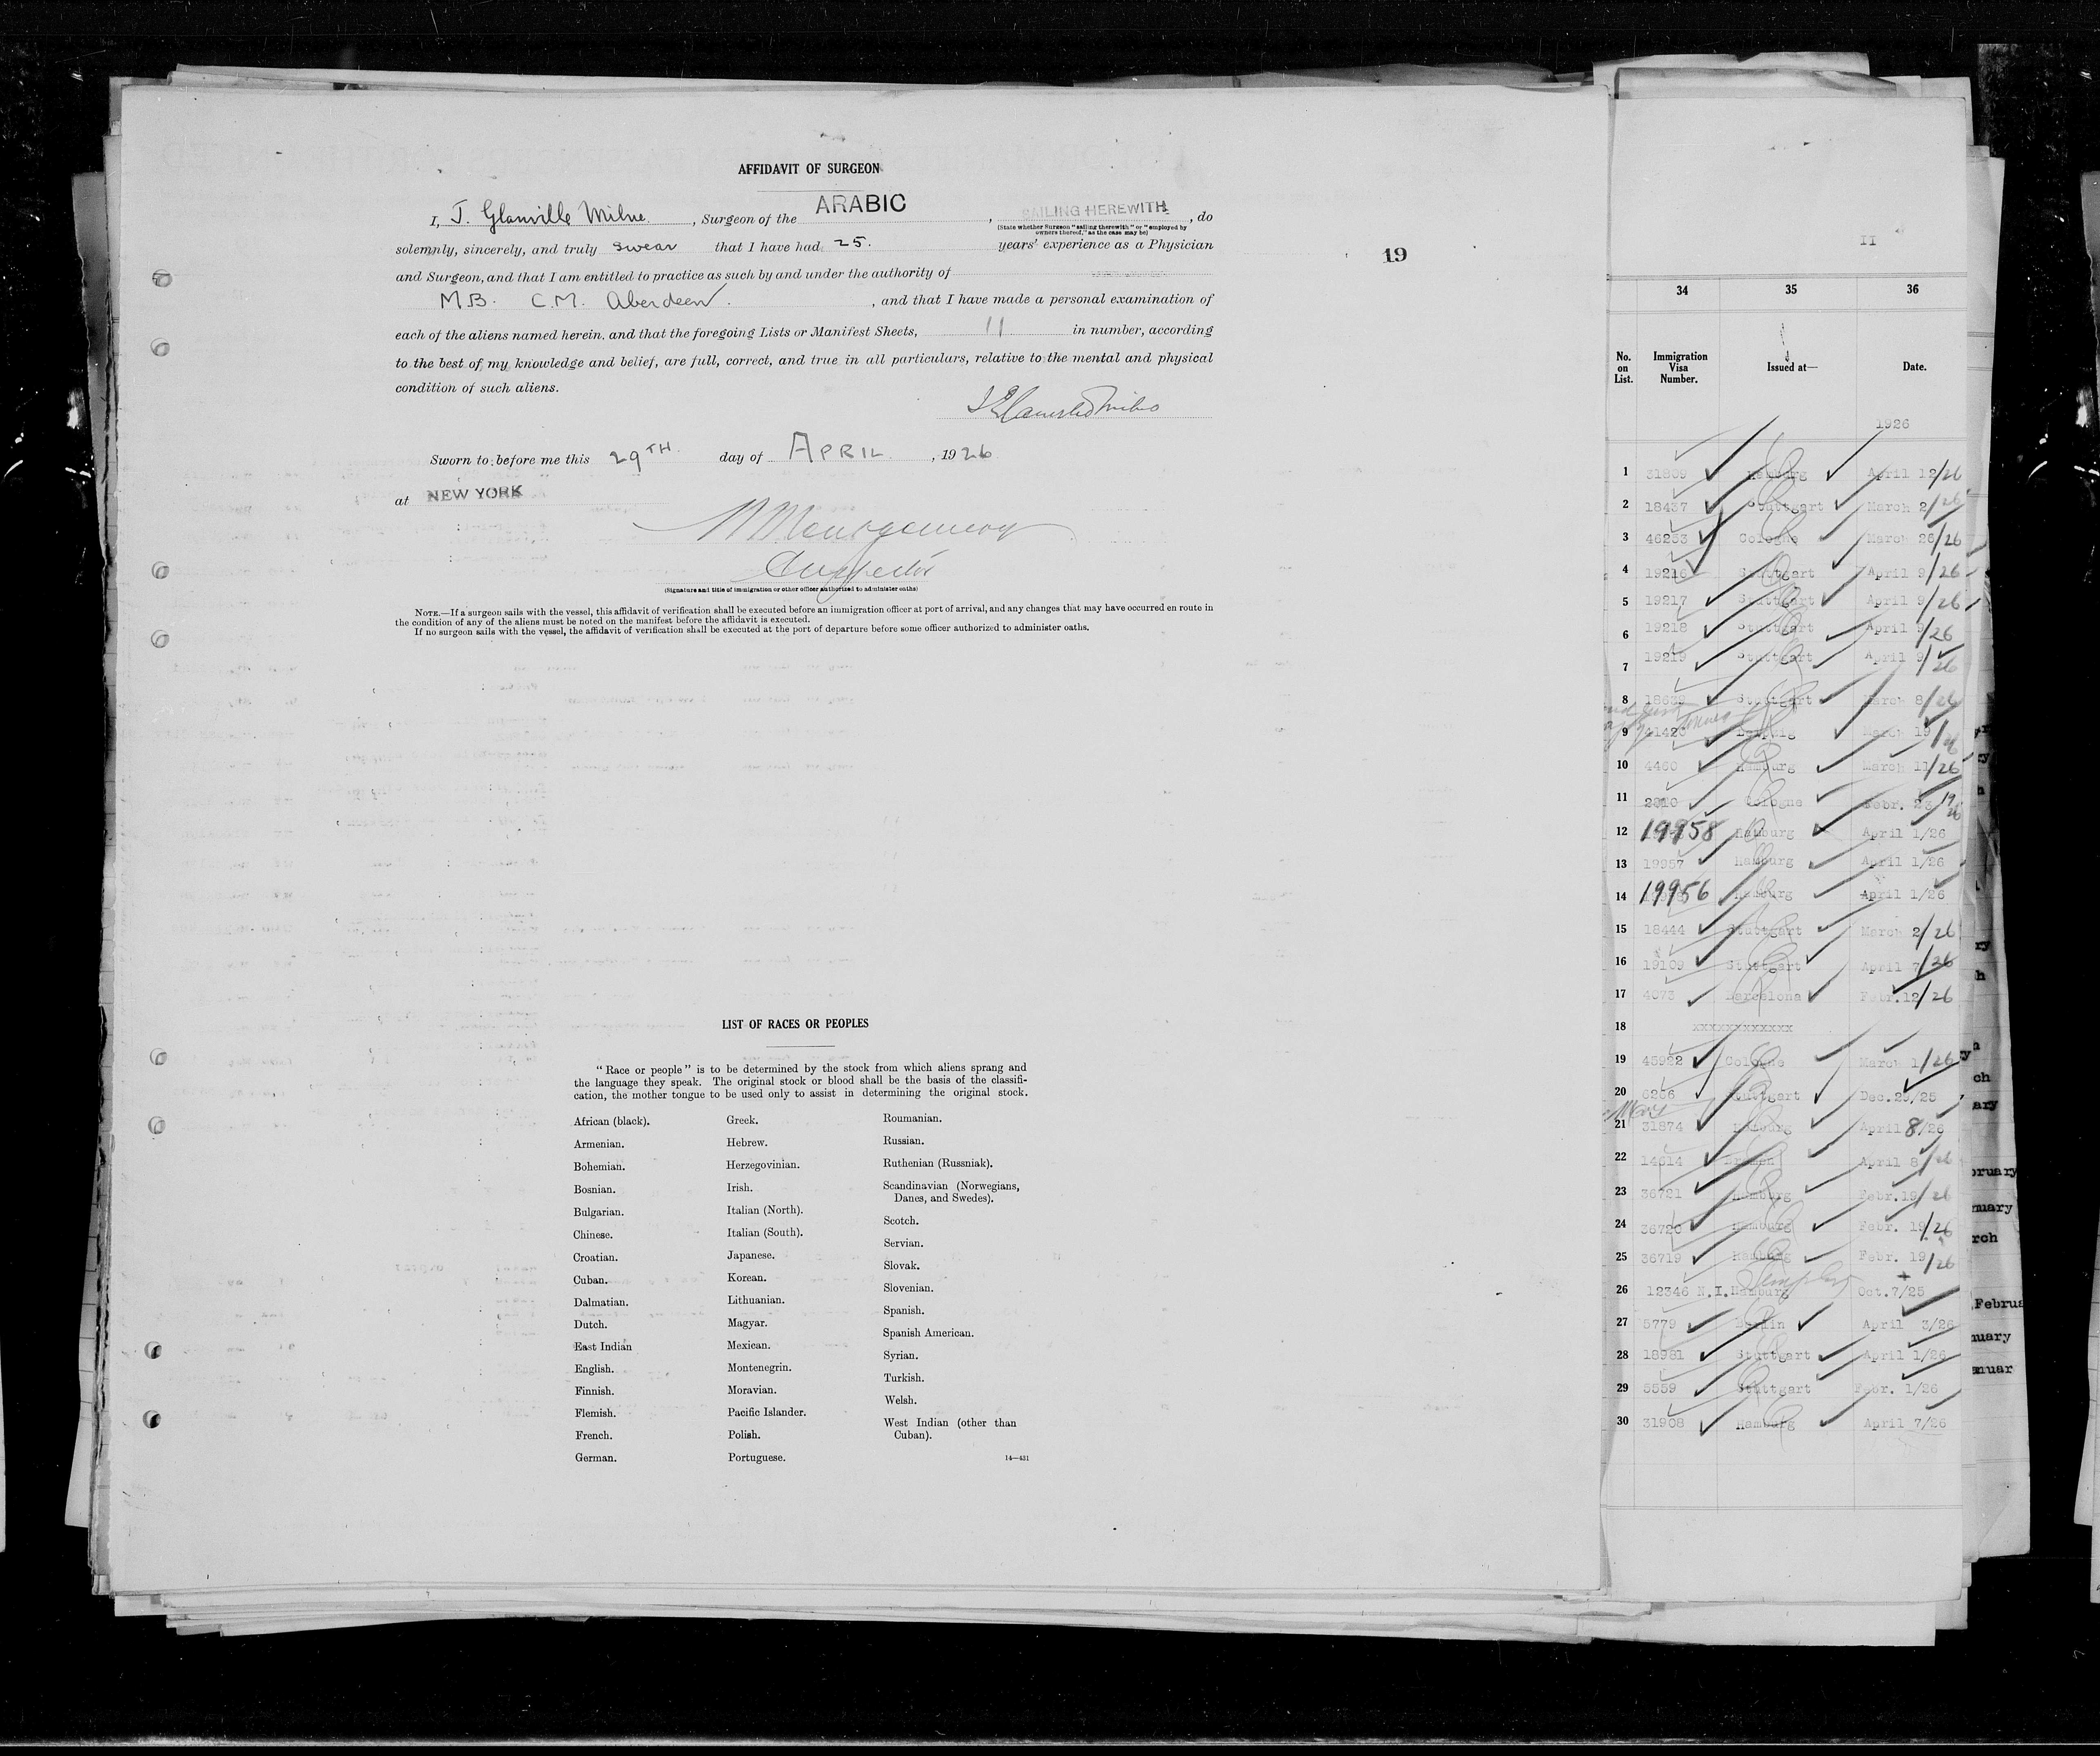 AFFIDAVIT OF SURGEON
I, J. Glanville Milne, Surgeon of the ARABIC, SAILING HEREWITH, do
(State whether Surgeon "sailing therewith" or "employed by
owners thereof," as the case may be)
solemnly, sincerely, and truly swear that I have had 25. years' experience as a Physician
and Surgeon, and that I am entitled to practice as such by and under the authority of
M.B. C.M. Aberdeen., and that I have made a personal examination of
each of the aliens named herein, and that the foregoing Lists or Manifest Sheets, 11 in number, according
to the best of my knowledge and belief, are full, correct, and true in all particulars, relative to the mental and physical
condition of such aliens.
J Glanville Milne
Sworn to before me this 29TH day of APRIL, 1926
at NEW YORK
Montgomery
Inspector
(Signature and title of immigration or other officer authorized to administer oaths)
NOTE.—If a surgeon sails with the vessel, this affidavit of verification shall be executed before an immigration officer at port of arrival, and any changes that may have occurred en route in
the condition of any of the aliens must be noted on the manifest before the affidavit is executed.
If no surgeon sails with the vessel, the affidavit of verification shall be executed at the port of departure before some officer authorized to administer oaths.
19
LIST OF RACES OR PEOPLES
"Race or people" is to be determined by the stock from which aliens sprang and
the language they speak. The original stock or blood shall be the basis of the classifi-
cation, the mother tongue to be used only to assist in determining the original stock.
African (black).
Armenian.
Bohemian.
Bosnian.
Bulgarian.
Chinese.
Croatian.
Cuban.
Dalmatian.
Dutch.
East Indian
English.
Finnish.
Flemish.
French.
German.
Greek.
Hebrew.
Herzegovinian.
Irish.
Italian (North).
Italian (South).
Japanese.
Korean.
Lithuanian.
Magyar.
Mexican.
Montenegrin.
Moravian.
Pacific Islander.
Polish.
Portuguese.
Roumanian.
Russian.
Ruthenian (Russniak).
Scandinavian (Norwegians,
Danes, and Swedes).
Scotch.
Servian.
Slovak.
Slovenian.
Spanish.
Spanish American.
Syrian.
Turkish.
Welsh.
West Indian (other than
Cuban).
14—431
II
34 35 36
No. on List. Immigration Visa Number. Issued at— Date.
1926
1 31809 Hamburg April 12/26
2 18437 Stuttgart March 2/26
3 46253 Cologne March 26/26
4 19216 Stuttgart April 9/26
5 19217 Stuttgart April 9/26
6 19218 Stuttgart April 9/26
7 19219 Stuttgart April 9/26
8 Stuttgart March 8/26
9 41420 Leipzig March 19/26
10 4460 Hamburg March 11/26
11 2810 Cologne Febr. 23 1926
12 19958 Hamburg April 1/26
13 19957 Hamburg April 1/26
14 19956 Hamburg April 1/26
15 18444 Stuttgart March 2/26
16 19109 Stuttgart April 7/26
17 4073 Barcelona Febr. 12/26
18 xxxxxxxxxxxxx
19 45922 Cologne March 1/26
20 6256 Stuttgart Dec. 29/25
21 31874 Hamburg April 8/26
22 14614 Bremen April 8/26
23 36721 Hamburg Febr. 19/26
24 36720 Hamburg Febr. 19/26
25 36719 Hamburg Febr. 19/26
26 12346 N.I. Hamburg Oct. 7/25
27 5779 Berlin April 3/26
28 18981 Stuttgart April 1/26
29 5559 Stuttgart Febr. 1/26
30 31908 Hamburg April 7/26